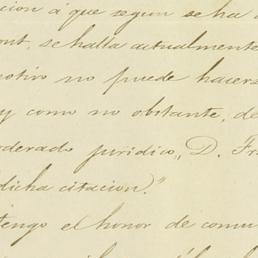 cion á que segun se ha
ont, se halla actualmente
otivo no puede hacers
y como no obstante, de
oderado juridico, D. Fra
dicha citacion."
tengo el honor de comu